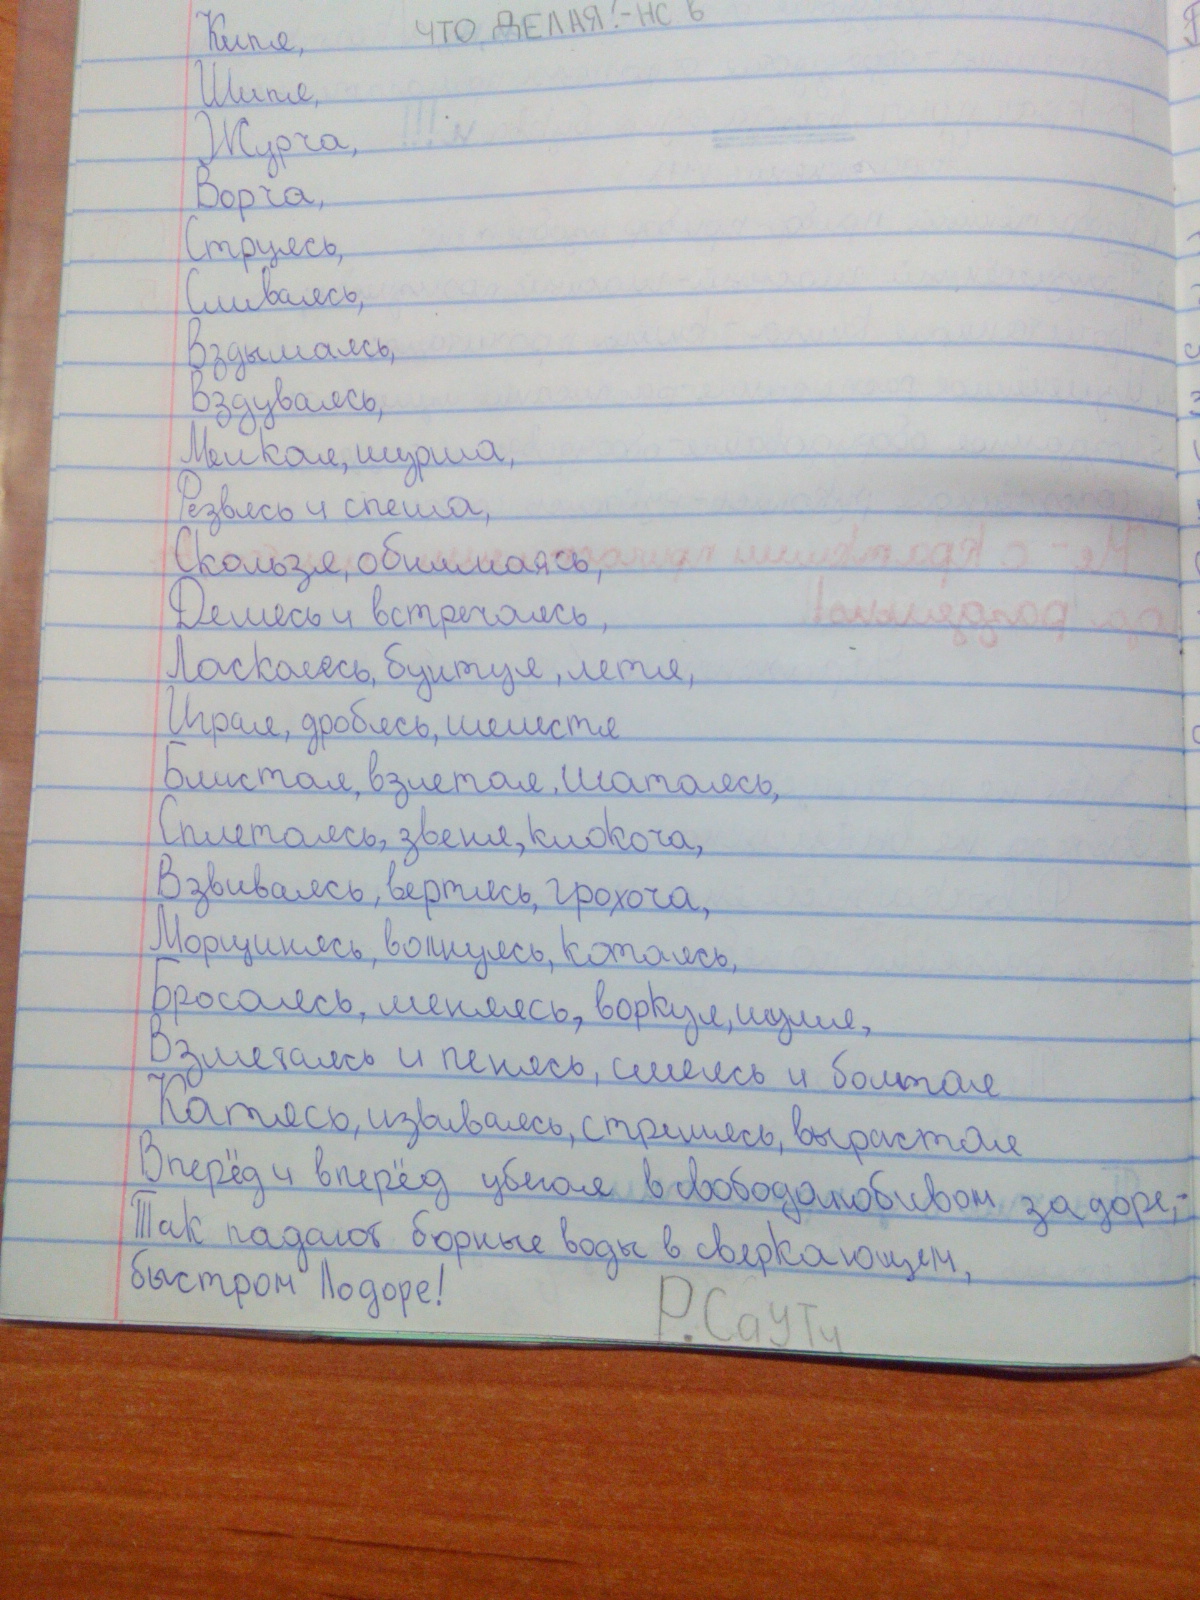 ЧТО ДЕЛАЯ?-НС В
Кипя,
Шипя,
Журча,
Ворча,
Струясь,
Сливаясь,
Вздымаясь,
Вздуваясь,
Мелкая, шурша,
Резвясь и спеша,
Скользя, обнимаясь,
Делясь и встречаясь,
Ласкаясь, бунтуя, летя,
Играя, дробясь, шелестя
Блистая, взлетая, шатаясь,
Сплетаясь, звеня, клокоча,
Взвиваясь, вертясь, грохоча,
Морщинясь, волнуясь, катаясь,
Бросаясь, меняясь, воркуя, шумя,
Взметаясь и пенясь, смеясь и болтая
Катясь, извиваясь, стремясь, вырастая
Вперёд и вперёд убегая в свободолюбивом задоре,-
Так падают бурные воды в сверкающем,
быстром Лодоре!
Р. Саути